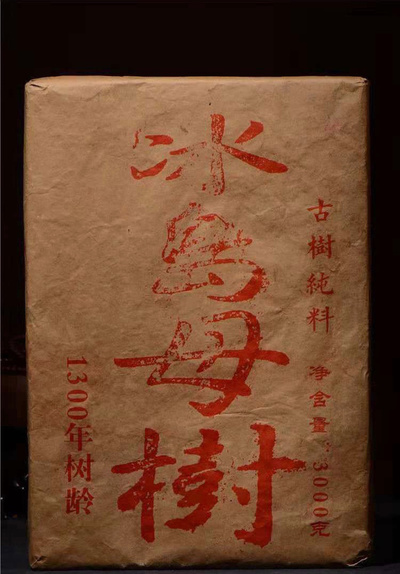 冰島母樹
古樹純料 净含量:3000克
1300年树龄